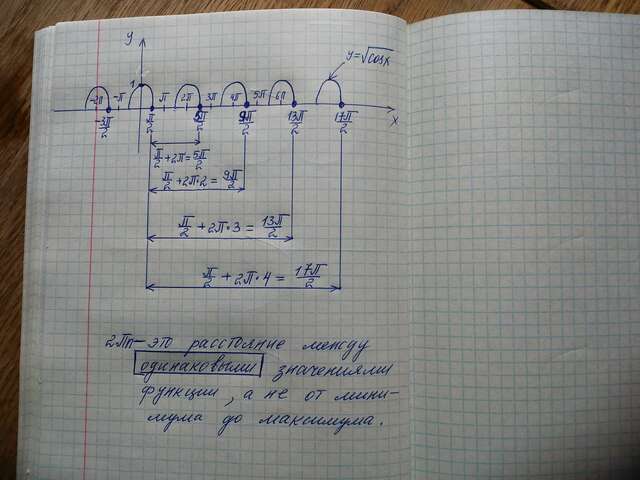 y
y=√cosx
1
-2π -π π 2π 3π 4π 5π 6π
-3π/2 π/2 5π/2 9π/2 13π/2 17π/2 x
π/2 + 2π = 5π/2
π/2 + 2π·2 = 9π/2
π/2 + 2π·3 = 13π/2
π/2 + 2π·4 = 17π/2
2πn - это расстояние между
одинаковыми значениями
функции, а не от мини-
мума до максимума.